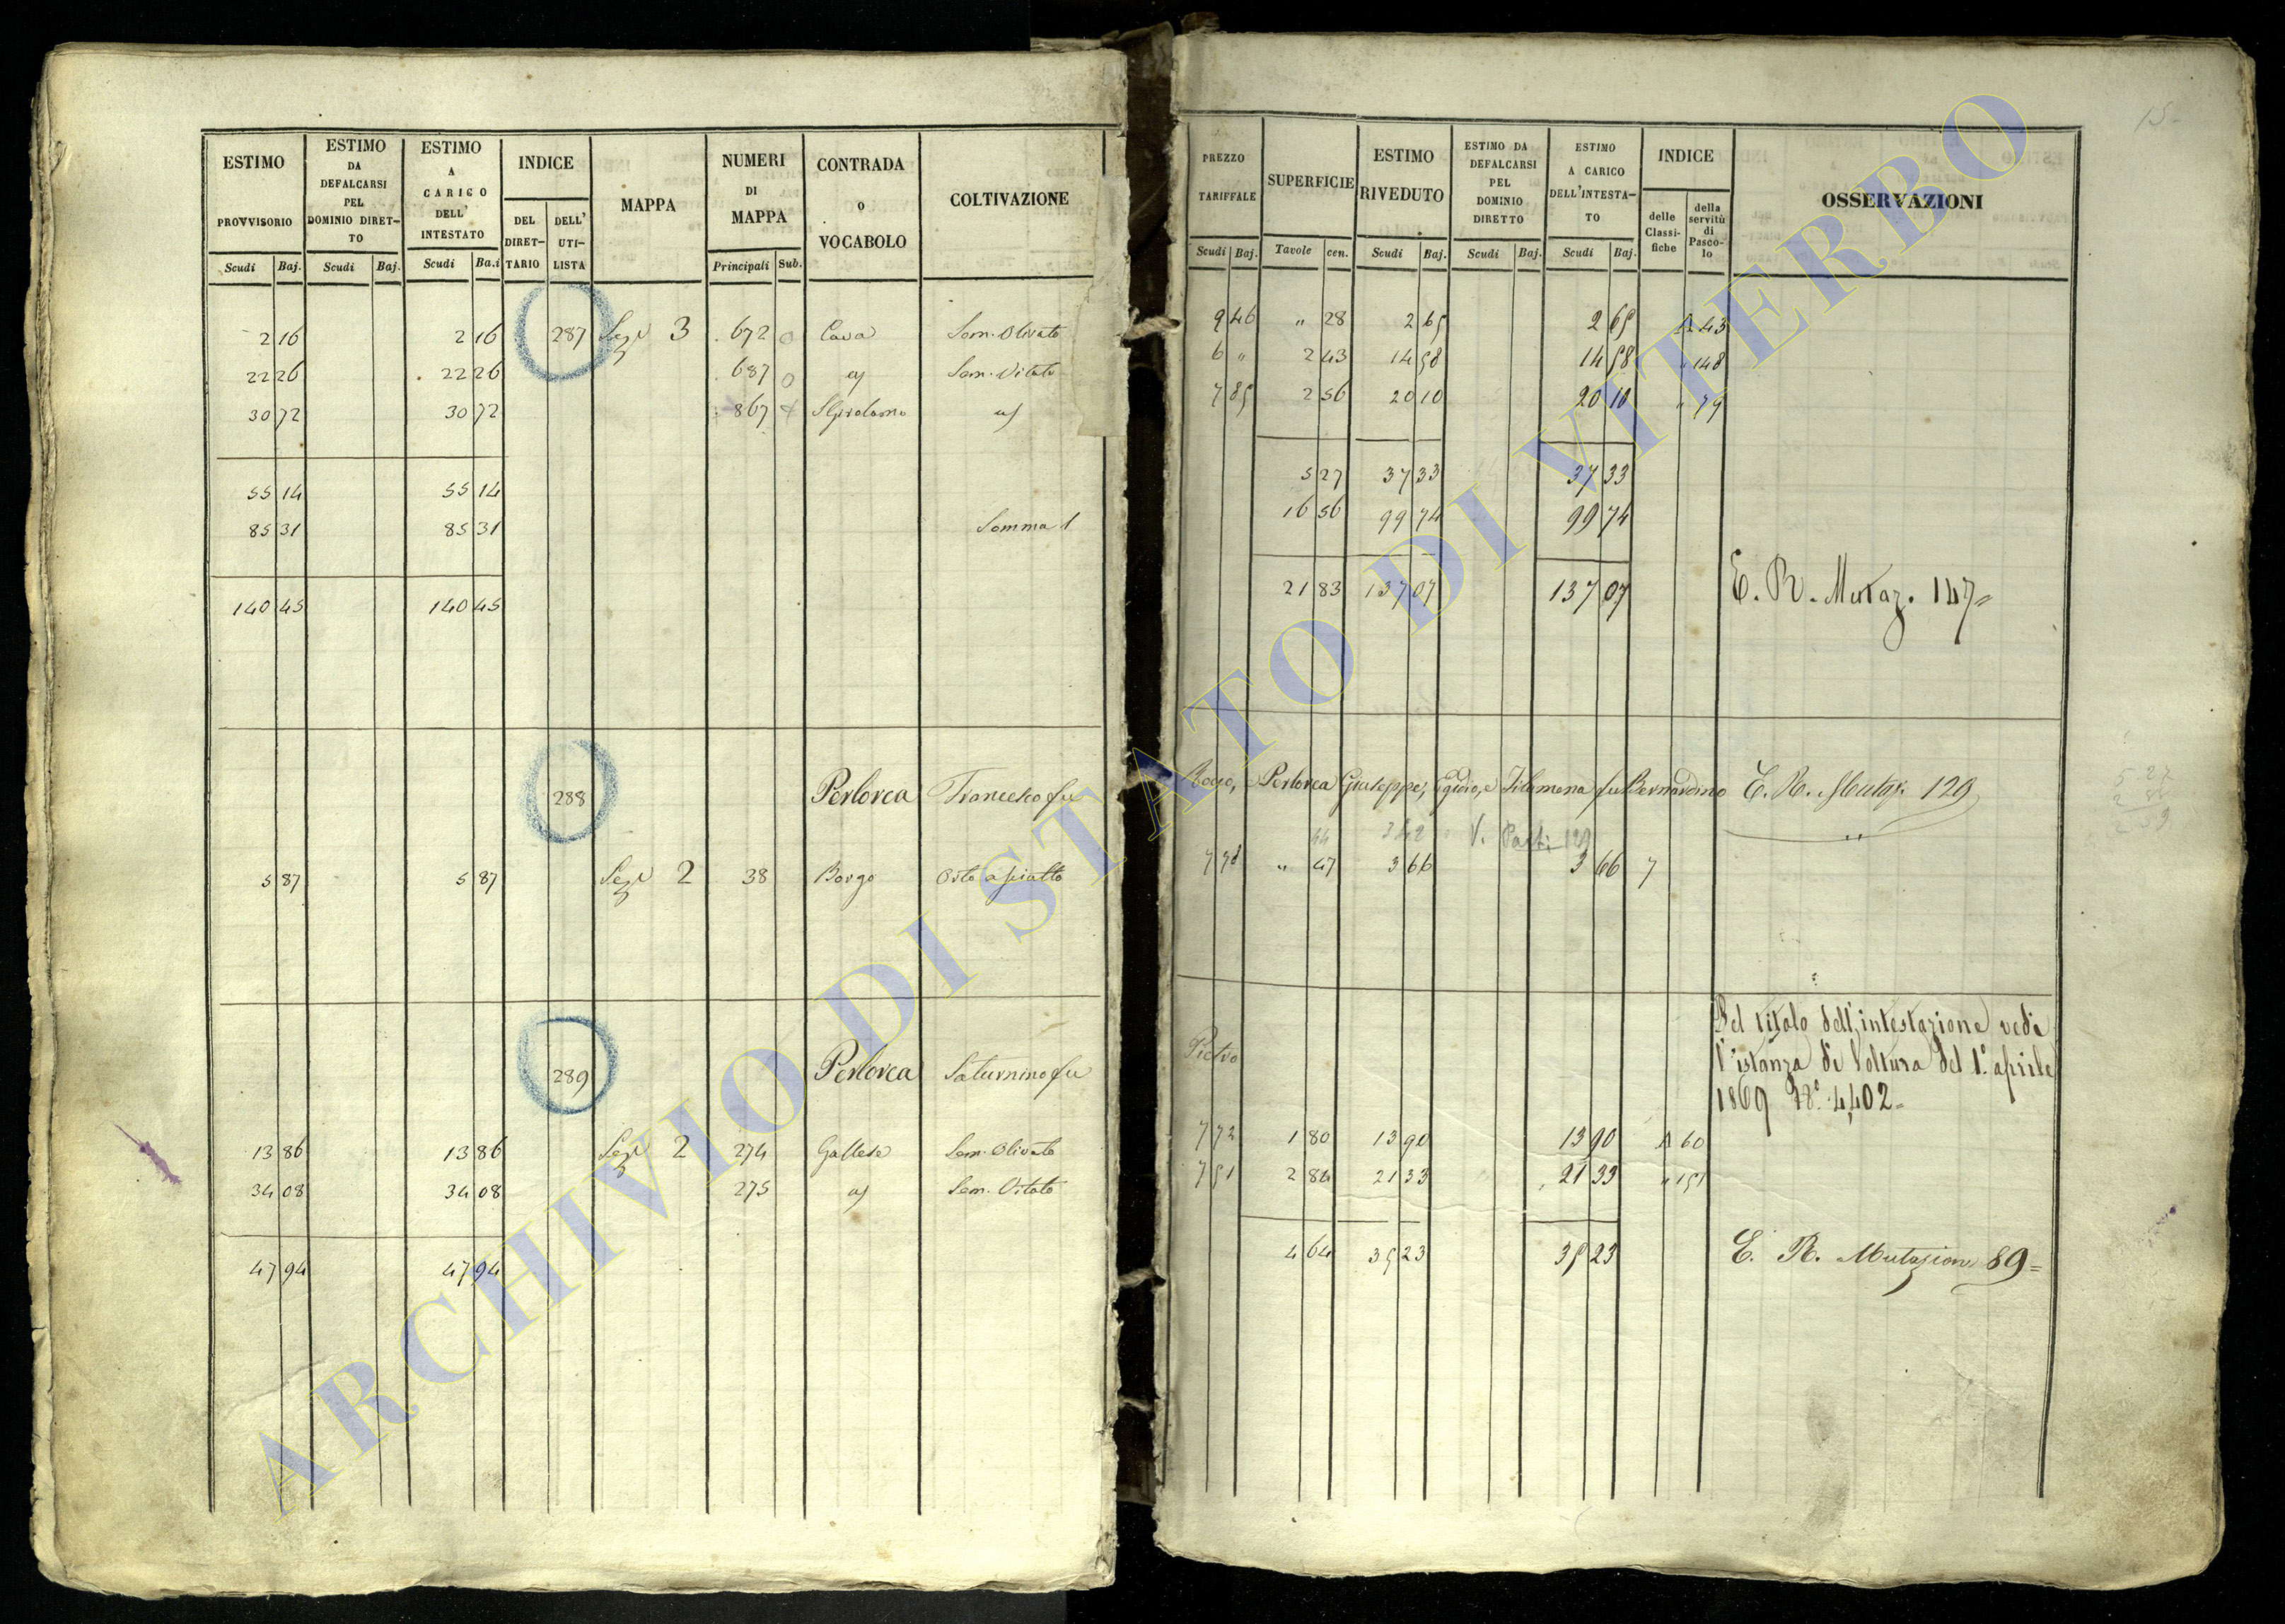 15
ESTIMO PROVVISORIO | ESTIMO DA DEFALCARSI PEL DOMINIO DIRETTO | ESTIMO A CARICO DELL' INTESTATO | INDICE | MAPPA | NUMERI DI MAPPA | CONTRADA O VOCABOLO | COLTIVAZIONE
DEL DIRETTARIO | DELL' UTILISTA
Scudi Baj. | Scudi Baj. | Scudi Ba.i | Principali Sub.
2 16 | 2 16 | 287 | Sez.e 3 | 672 0 | Cava | Sem. Olivato
22 26 | 22 26 | 687 0 | Sem. Vitato
30 72 | 30 72 | 867 | S Girolamo
55 14 | 55 14
85 31 | 85 31 | Somma 1
140 45 | 140 45
288 | Perlorca Francesco fu
5 87 | 5 87 | Sez.e 2 | 38 | Borgo | Orto asciutto
289 | Perlorca Saturnino fu
13 86 | 13 86 | Sez.e 2 | 274 | Gallese | Sem. Olivato
34 08 | 34 08 | 275 | Sem. Vitato
47 94 | 47 94
PREZZO TARIFFALE | SUPERFICIE | ESTIMO RIVEDUTO | ESTIMO DA DEFALCARSI PEL DOMINIO DIRETTO | ESTIMO A CARICO DELL'INTESTATO | INDICE | OSSERVAZIONI
delle Classifiche | della servitù di Pascolo
Scudi Baj. | Tavole cen. | Scudi Baj. | Scudi Baj. | Scudi Baj.
9 46 | " 28 | 2 65 | 2 65 | 43
6 " | 2 43 | 14 58 | 14 58 | " 148
7 85 | 2 56 | 20 10 | 20 10 | " 79
5 27 | 37 33 | 37 33
16 56 | 99 74 | 99 74
21 83 | 137 07 | 137 07 | E. R. Mutaz. 147=
e Perlorca Giuseppe, Egidio, e Filomena fu Bernardino | E. R. Mutaz. 129
44 | 3 42 | V. Part. 129
7 78 | " 47 | 3 66 | 3 66 | 7
Pietro | Pel titolo dell'intestazione vedi
l'istanza di Voltura del 1.° aprile
1869 N.° 4402=
7 72 | 1 80 | 13 90 | 13 90 | 60
7 51 | 2 84 | 21 33 | 21 33 | " 151
4 64 | 35 23 | 35 23 | E. R. Mutazion 89=
ARCHIVIO DI STATO DI VITERBO